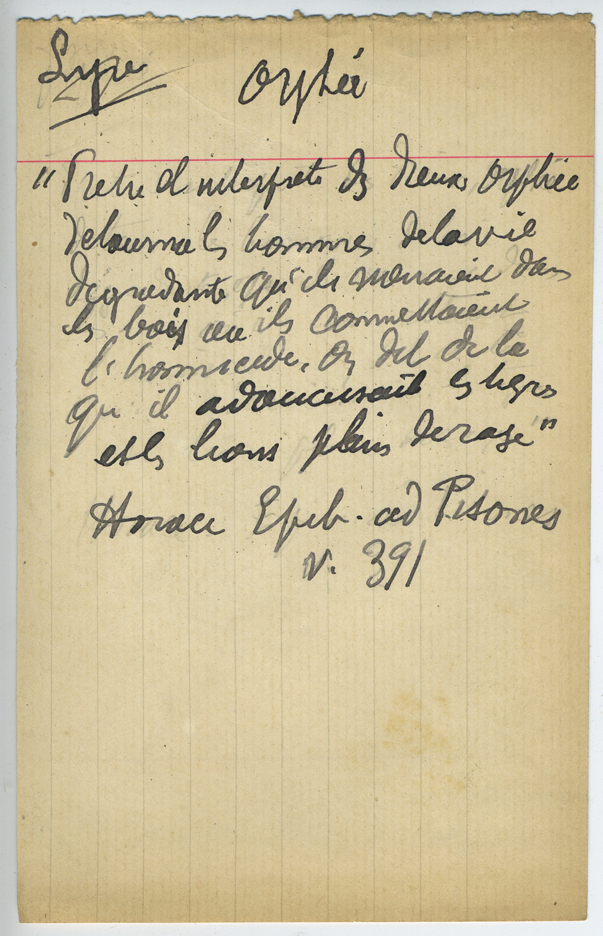 Lyre
Orphée
"Pretre et interprete des dieux Orphée
detourna les hommes de la vie
degradante qu'ils menaient dans
les bois ou ils commettaient
l'homicide, on dit de la
qu'il adoucissait les tigres
et les lions plein de rage"
Horace Epit. ad Pisones
v. 391